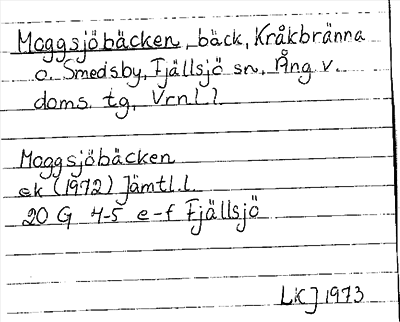 Moggsjöbäcken, bäck, Kråkbränna
o. Smedsby, Fjällsjö sn, Ång v.
doms. tg, Vrnl. l.
Moggsjöbäcken
ek (1972) Jämtl. l.
20 G 4-5 e-f Fjällsjö
LKJ 1973